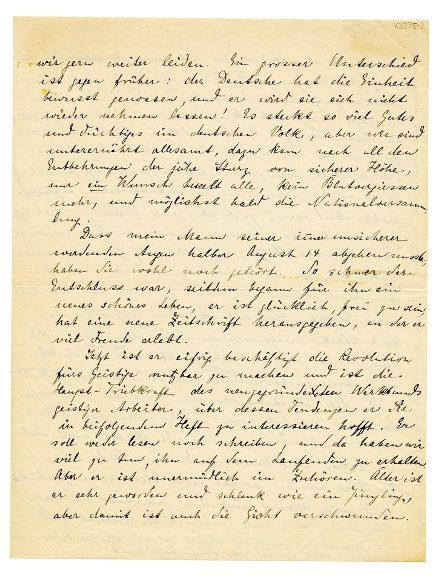 63295-2
wir gern weiter leiden. Ein grosser Unterschied
ist gegen früher: der Deutsche hat die Einheit
bewusst genossen, und er wird sie sich nicht
wieder nehmen lassen! Es steckt so viel Gutes
und Tüchtiges im deutschen Volk, aber wir sind
unterernährt allesamt, dazu kam nach all den
Entbehrungen der jähe Sturz von sicherer Höhe,
nur ein Wunsch beseelt alle, kein Blutvergiessen
mehr, und möglichst bald die Nationalversamm-
lung.
Dass mein Mann seiner immer unsicherer
werdenden Augen halber August 14 abgehen musste,
haben Sie wohl noch gehört. So schwer der
Entschluss war, seitdem begann für ihn ein
neues schönes Leben, er ist glücklich, frei zu sein
hat eine neue Zeitschrift herausgegeben, an der er
viel Freude erlebt.
Jetzt ist er eifrig beschäftigt die Revolution
fürs Geistige nutzbar zu machen und ist die
Haupt-Triebkraft des neugegründeten Werkbunds
geistiger Arbeiter, über dessen Tendenzen er Sie
in beifolgendem Heft zu interessieren hofft. Er
soll weder lesen noch schreiben, und da haben wir
viel zu tun, ihn auf dem Laufenden zu erhalten
Aber er ist unermüdlich im Zuhören. Älter ist
er sehr geworden und schlank wie ein Jüngling,
aber damit ist auch die Gicht verschwunden.